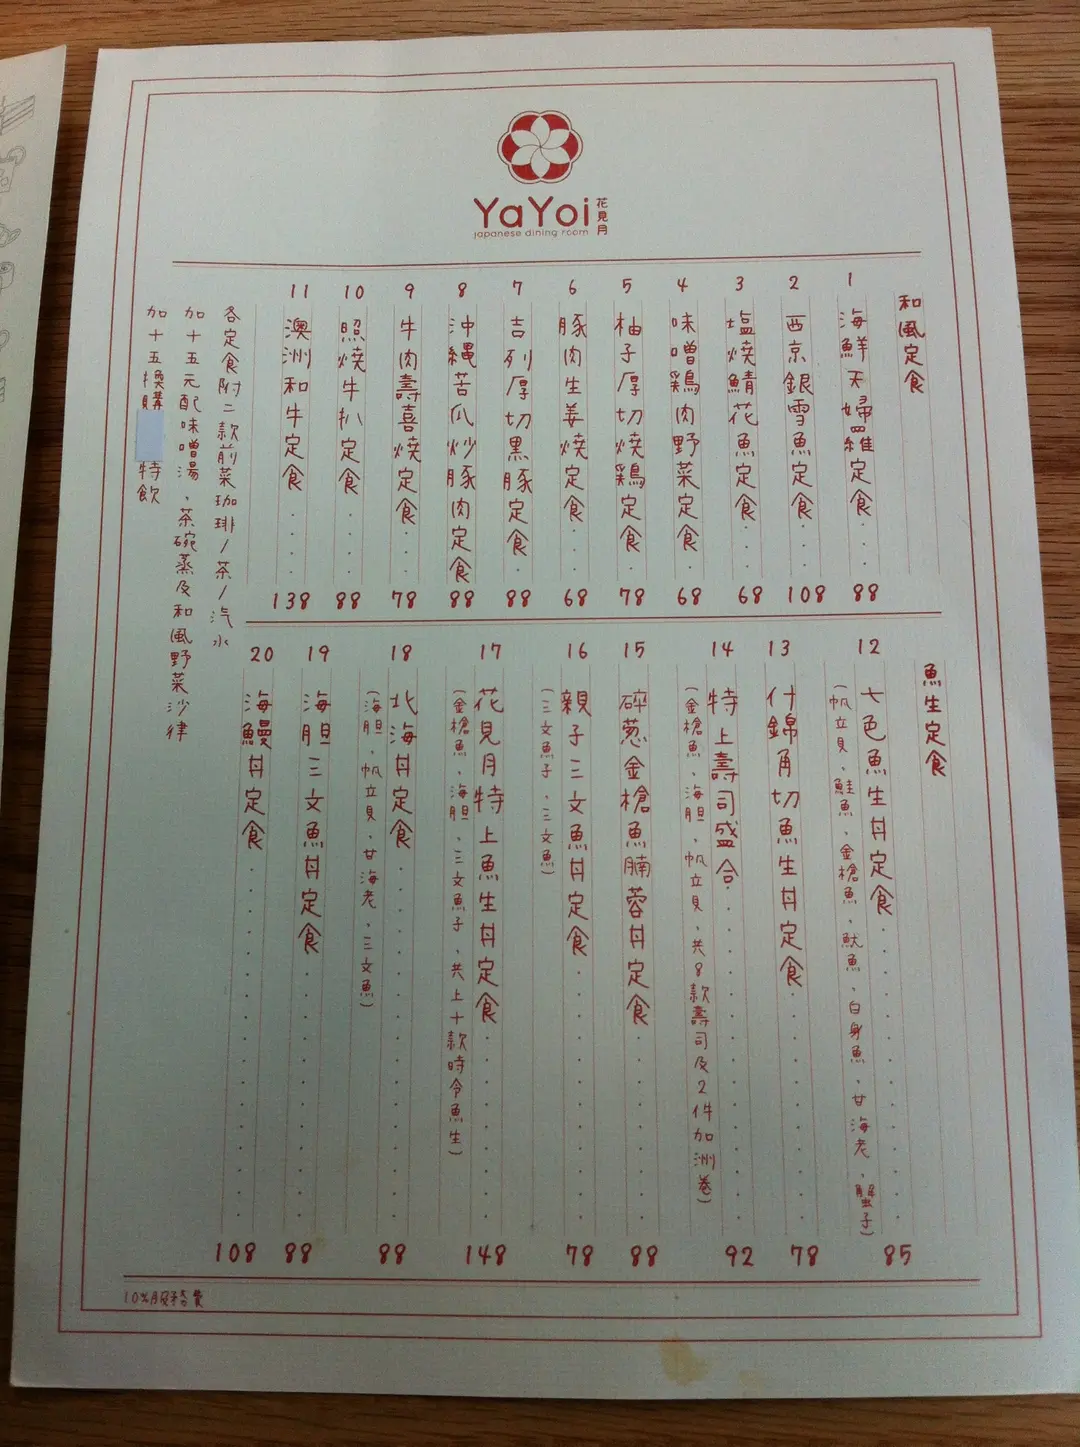 YaYoi 花見月
japanese dining room
和風定食
1 海鮮天婦羅定食 88
2 西京銀雪魚定食 108
3 塩焼鯖花魚定食 68
4 味噌鶏肉野菜定食 68
5 柚子厚切焼鶏定食 78
6 豚肉生姜焼定食 68
7 吉列厚切黒豚定食 88
8 沖縄苦瓜炒豚肉定食 88
9 牛肉壽喜燒定食 78
10 照焼牛扒定食 88
11 澳洲和牛定食 138
各定食附二款前菜珈琲/茶/汽水
加十五元配味噌湯、茶碗蒸及和風野菜沙律
加十五換購特飲
魚生定食
12 七色魚生丼定食 85
(帆立貝、鮭魚、金槍魚、魷魚、白身魚、甘海老、蟹子)
13 什錦角切魚生丼定食 78
14 特上壽司盛合 92
(金槍魚、海胆、帆立貝、共8款壽司及2件加洲卷)
15 碎葱金槍魚腩蓉丼定食 88
16 親子三文魚丼定食 78
(三文魚子、三文魚)
17 花見月特上魚生丼定食 148
(金槍魚、海胆、三文魚子、共上十款時令魚生)
18 北海丼定食 88
(海胆、帆立貝、甘海老、三文魚)
19 海胆三文魚丼定食 88
20 海鰻丼定食 108
10%服務費